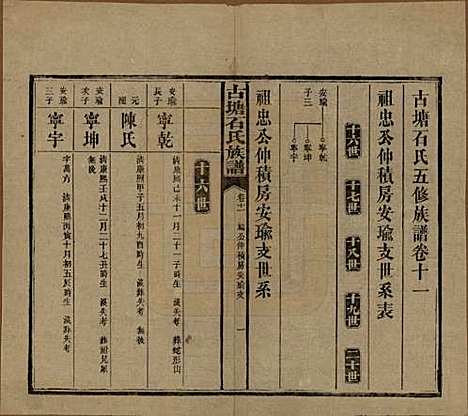 古塘石氏五修族譜卷十一
祖忠公仲積房安瑜支世系表
十六世 十七世 十八世 十九世 二十世
安瑜
子三
寧乾
寧坤
寧宇
祖忠公仲積房安瑜支世系
古塘石氏族譜
卷十一
一
十六世
安瑜
長子
寧乾
清康熙己未十一月二十一子時生 沒失考 葬蛇形山
元
配
陳氏
清康熙甲子五月初九酉時生 沒葬失考
安瑜
次子
寧坤
清康熙壬戌十二月二十七丑時生 沒失考 葬附兄
無後
安瑜
三子
寧宇
字萬方 清康熙丙寅十月初五辰時生 沒葬失考